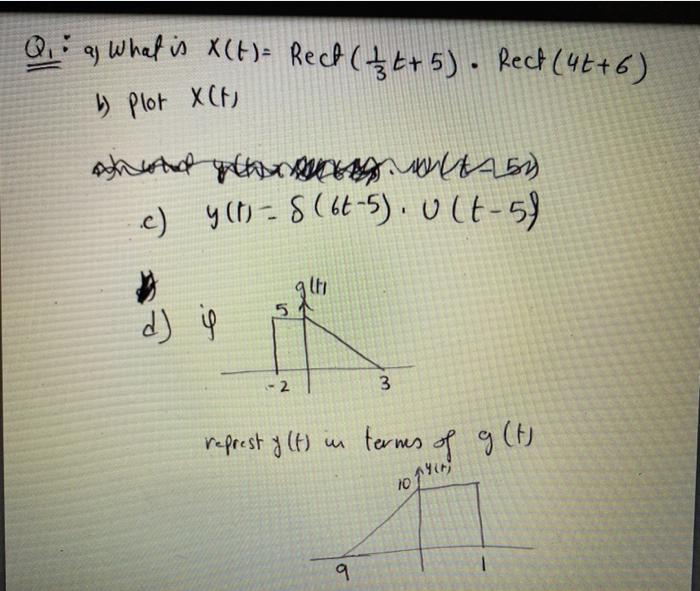 Q1: a) What is X(t) = Rect(1/3 t + 5) . Rect(4t+6)
b) plot X(t)
c) y(t) = δ(6t-5) . U(t-5)
d) if
g(t)
5
-2 3
represt y(t) in terms of g(t)
y(t)
10
9 1